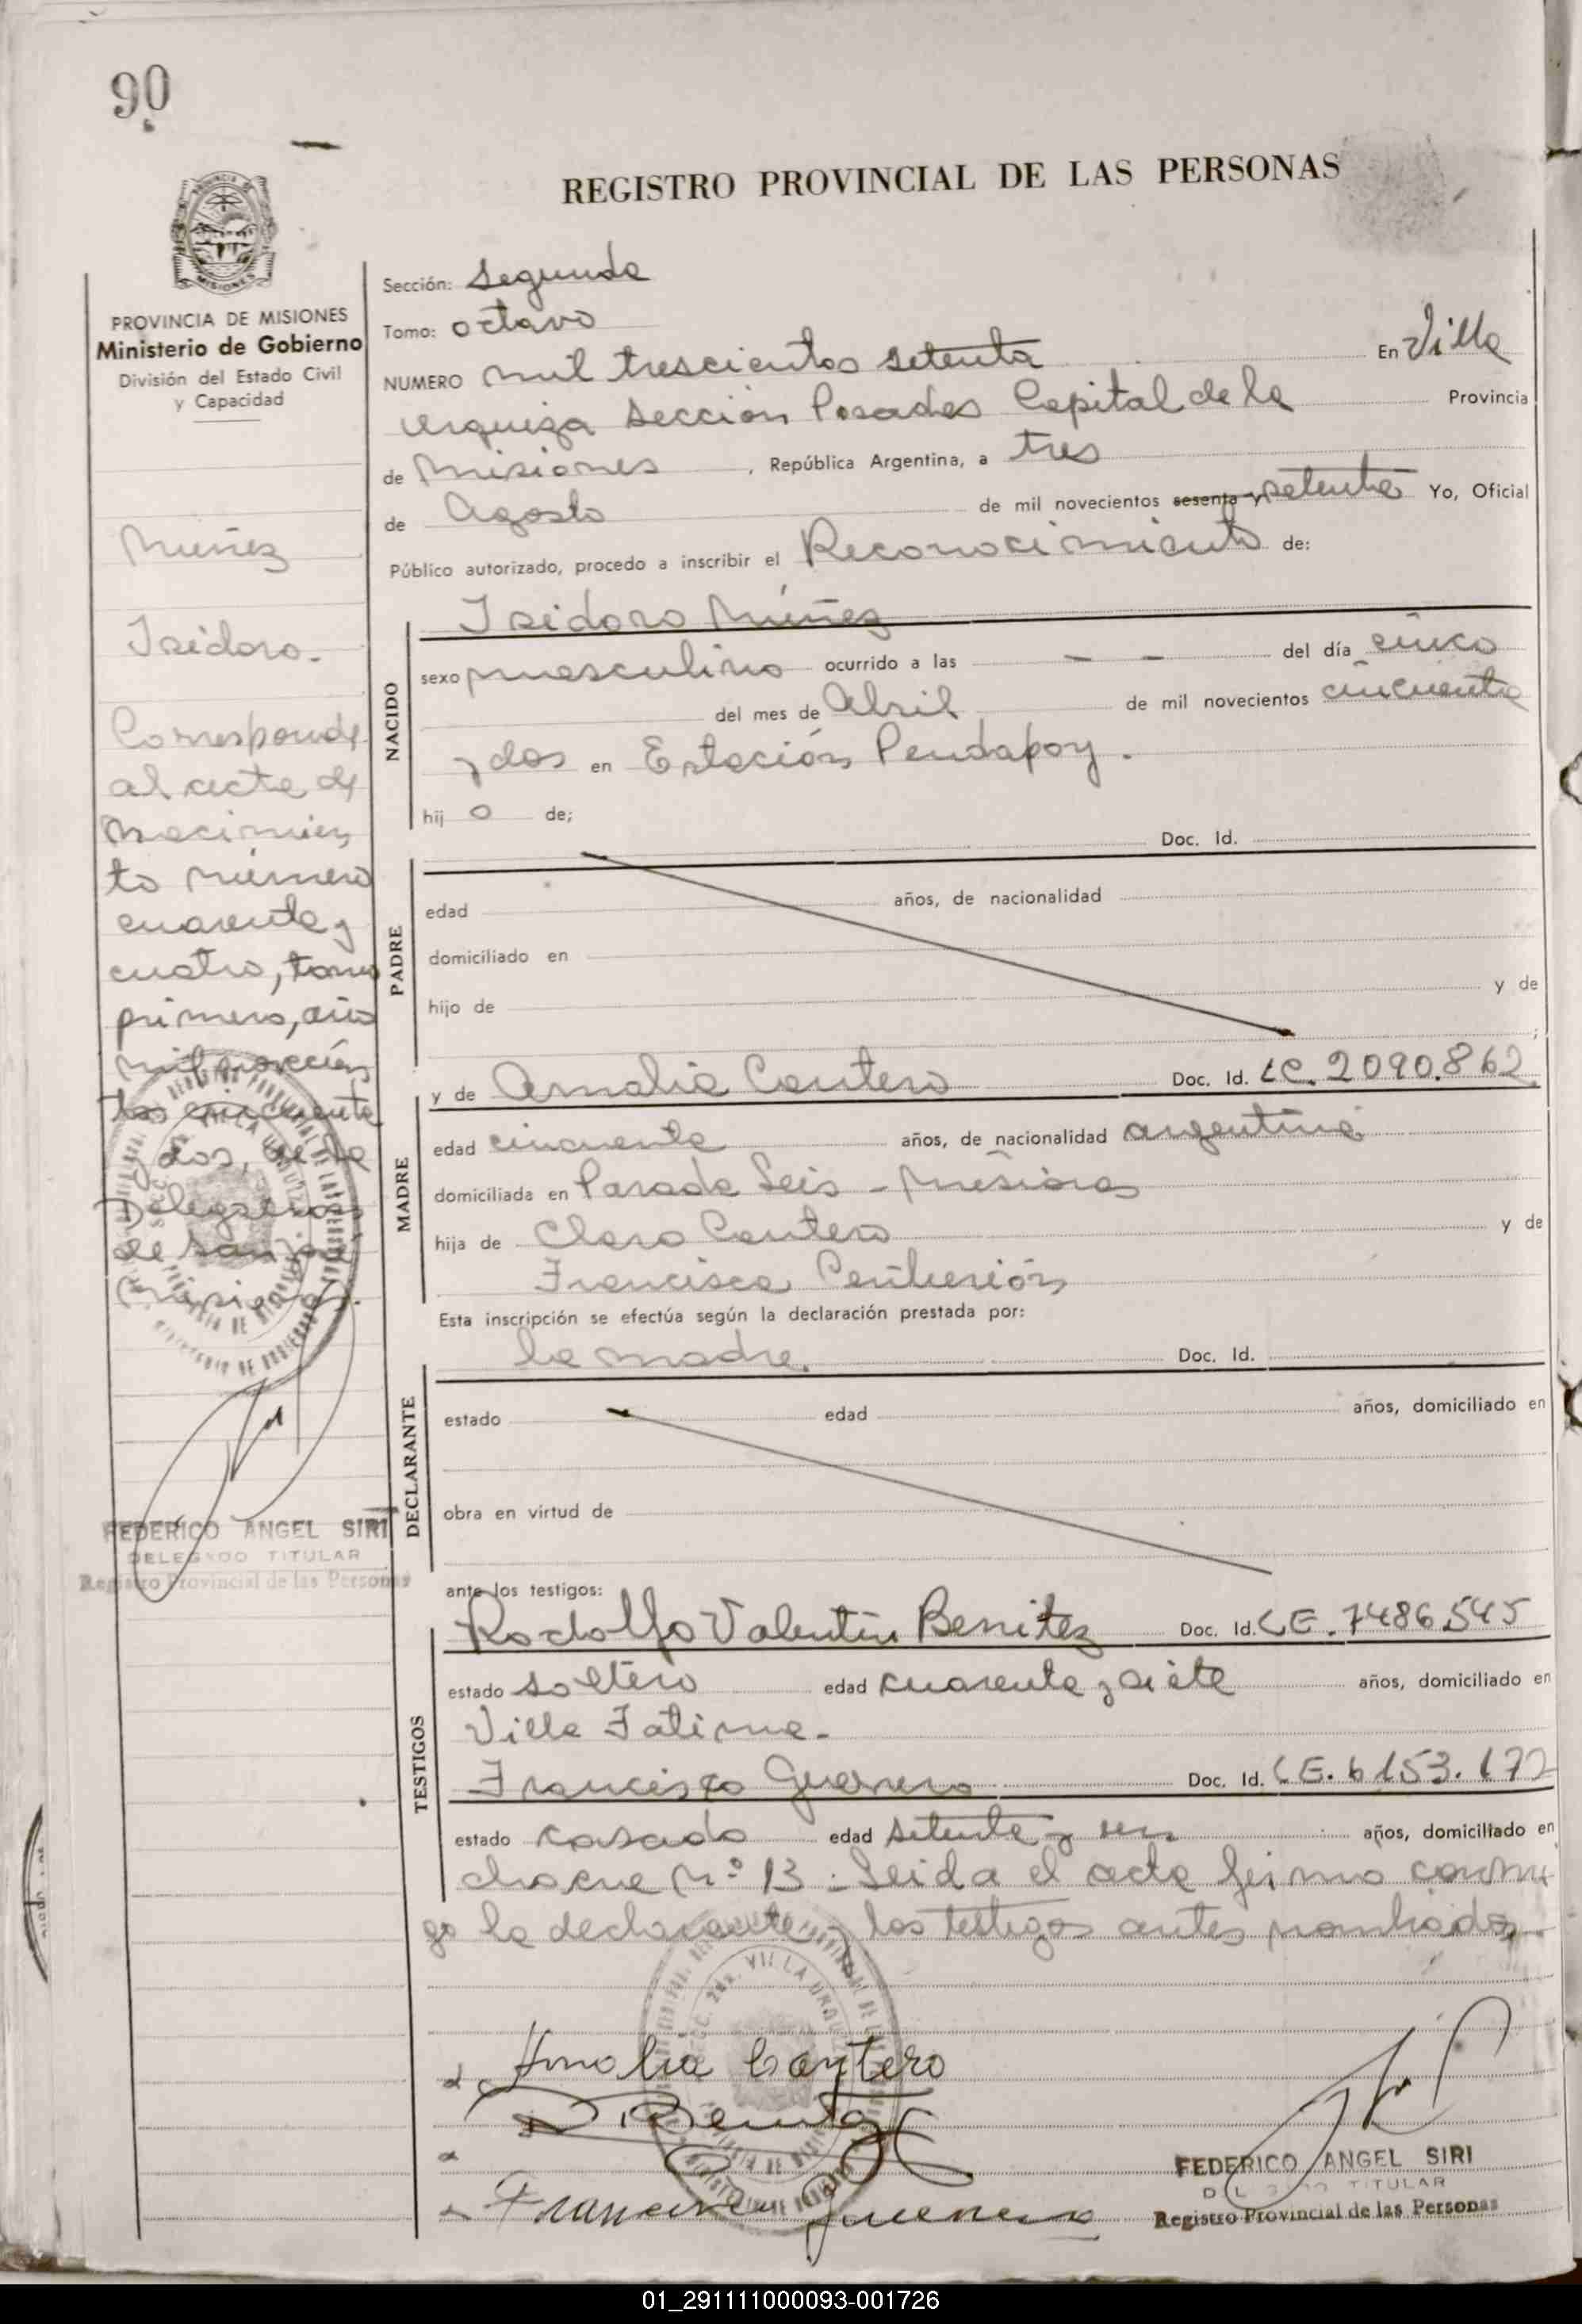 90
REGISTRO PROVINCIAL DE LAS PERSONAS
PROVINCIA DE MISIONES
Ministerio de Gobierno
División del Estado Civil
y Capacidad
Sección: Segunda
Tomo: octavo
NUMERO mil trescientos setenta En Villa
Urquiza sección Posadas Capital de la Provincia
de Misiones, República Argentina, a tres
de Agosto de mil novecientos sesenta y setenta Yo, Oficial
Público autorizado, procedo a inscribir el Reconocimiento de:
Nuñez
Isidoro.-
Corresponde
al acta de
Nacimien
to número
cuarenta y
cuatro, tomo
primero, año
mil novecien
tos cincuenta
y dos, de la
Delegación
de San José
Misiones.
FEDERICO ANGEL SIRI
DELEGADO TITULAR
Registro Provincial de las Personas
NACIDO
Isidoro Núñez
sexo masculino ocurrido a las — — del día cinco
del mes de Abril de mil novecientos cincuenta
y dos en Estación Pindapoy.
hij o de;
Doc. Id.
PADRE
edad años, de nacionalidad
domiciliado en
hijo de y de
;
MADRE
y de Amalia Cantero Doc. Id. LC. 2090.862
edad cincuenta años, de nacionalidad argentina
domiciliada en Parada Seis - Misiones
hija de Claro Cantero y de
Francisca Centurión
Esta inscripción se efectúa según la declaración prestada por:
la madre. Doc. Id.
DECLARANTE
estado edad años, domiciliado en
obra en virtud de
ante los testigos:
TESTIGOS
Rodolfo Valentín Benitez Doc. Id. LE. 7486545
estado soltero edad cuarenta y siete años, domiciliado en
Villa Fatima.-
Francisco Guerrero Doc. Id. LE. 6153.172
estado casado edad setenta y un años, domiciliado en
chacra N.º 13.- Leida el acta firma conmi
go la declarante y los testigos antes nombrados,
Amalia Cantero
R Benitez
Francisco Guerrero
FEDERICO ANGEL SIRI
TITULAR
Registro Provincial de las Personas
01_291111000093-001726